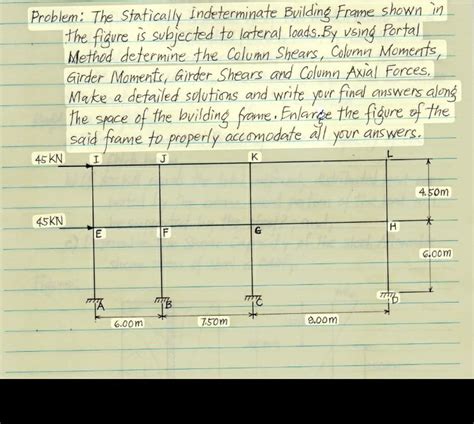 Problem: The Statically Indeterminate Building Frame shown in
the figure is subjected to lateral loads. By using Portal
Method determine the Column Shears, Column Moments,
Girder Moments, Girder Shears and Column Axial Forces.
Make a detailed solutions and write your final answers along
the space of the building frame. Enlarge the figure of the
said frame to properly accomodate all your answers.
45 KN I J K L
4.50m
45KN
E F G H
6.00m
A B C D
6.00m 7.50m 9.00m